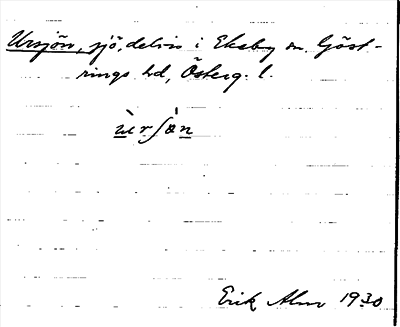 Ursjön, sjö, delvis i Ekeby sn. Göst-
rings hd, Österg. l.
Erik Alm 1930